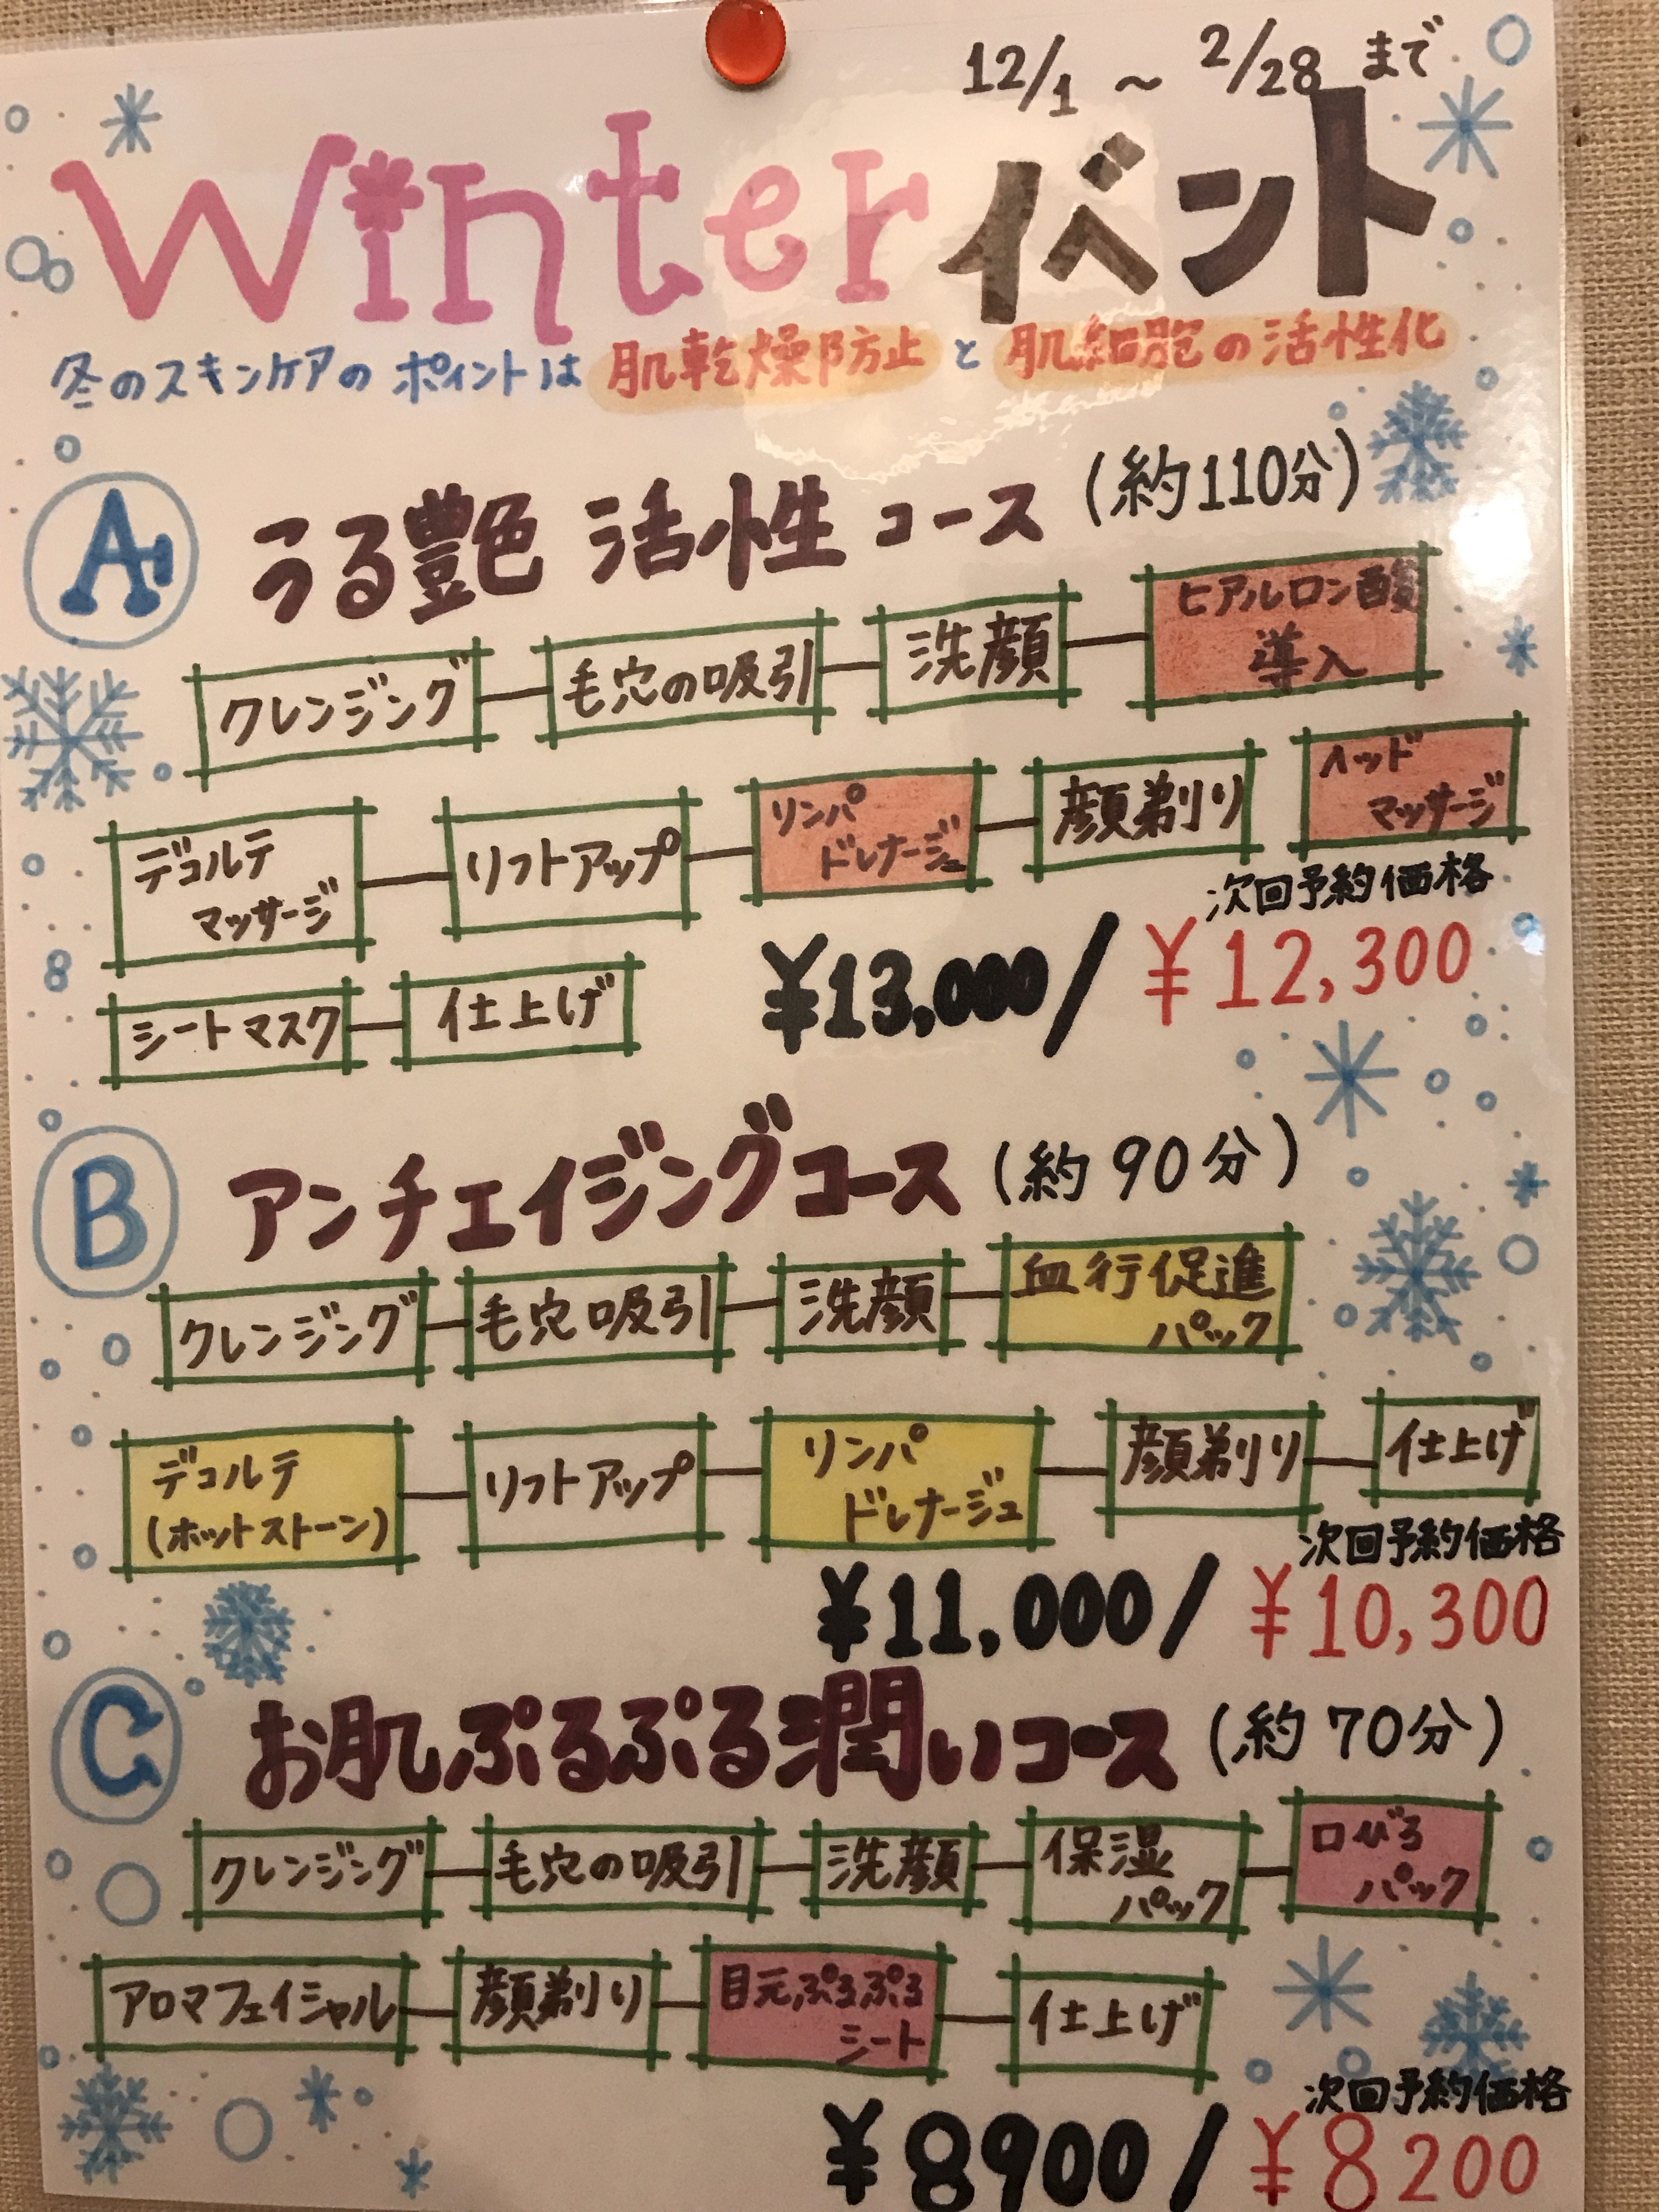 12/1 ～ 2/28 まで
Winterイベント
冬のスキンケアの ポイントは 肌乾燥防止 と 肌細胞の活性化
A うる艶 活性 コース (約110分)
クレンジング 毛穴の吸引 洗顔 ヒアルロン酸 導入
デコルテ マッサージ リフトアップ リンパ ドレナージュ 顔剃り ヘッド マッサージ
シートマスク 仕上げ
次回予約価格
¥13,000 / ¥12,300
B アンチエイジングコース (約 90分)
クレンジング 毛穴吸引 洗顔 血行促進 パック
デコルテ (ホットストーン) リフトアップ リンパ ドレナージュ 顔剃り 仕上げ
次回予約価格
¥11,000 / ¥10,300
C お肌ぷるぷる潤いコース (約 70分)
クレンジング 毛穴の吸引 洗顔 保湿 パック 口びる パック
アロマフェイシャル 顔剃り 目元ぷるぷる シート 仕上げ
次回予約価格
¥8900 / ¥8200